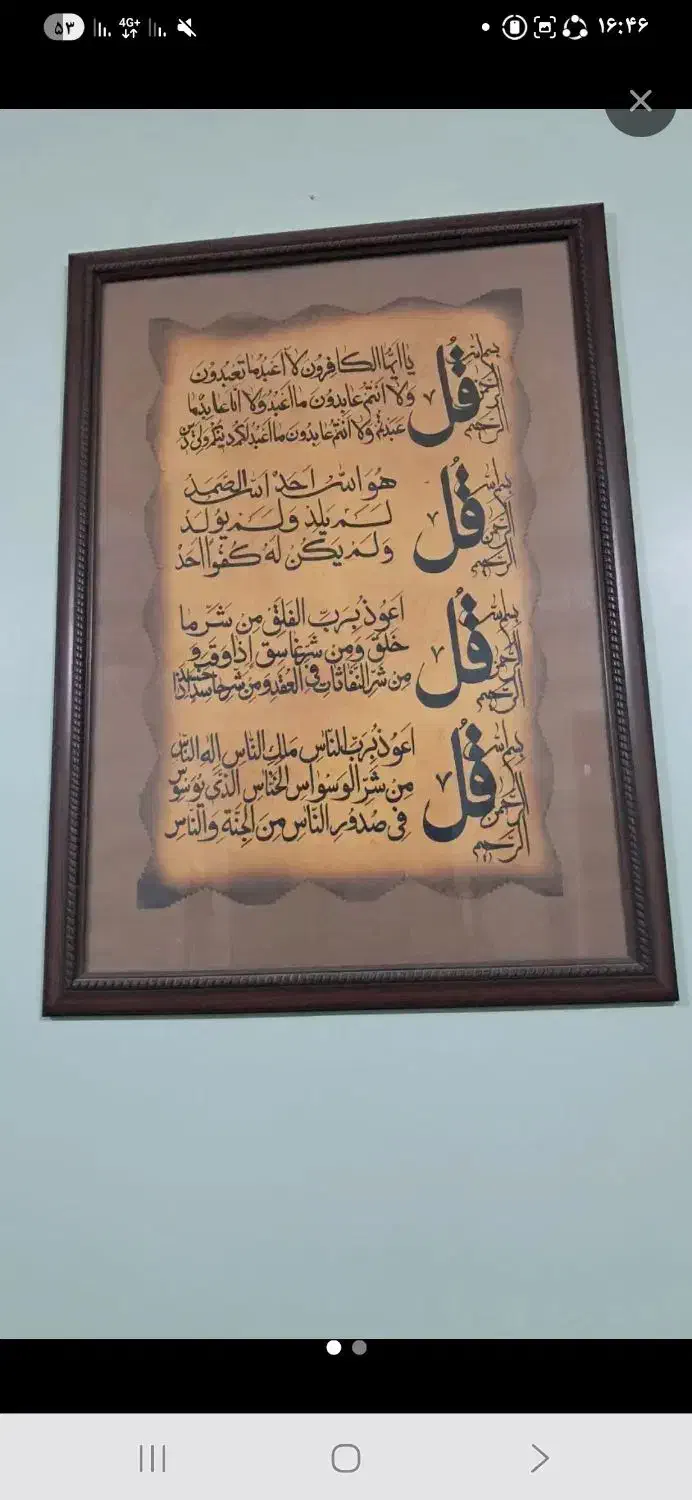 ۵۳
4G+
۱۶:۴۶
بسم الله الرحمن الرحیم
قُل
یا ایها الکافرون لا اعبد ما تعبدون
ولا انتم عابدون ما اعبد ولا انا عابد ما
عبدتم ولا انتم عابدون ما اعبد لکم دینکم ولی دین
بسم الله الرحمن الرحیم
قُل
هو الله احد الله الصمد
لم یلد ولم یولد
ولم یکن له کفوا احد
بسم الله الرحمن الرحیم
قُل
اعوذ برب الفلق من شر ما
خلق ومن شر غاسق اذا وقب و
من شر النفاثات فی العقد ومن شر حاسد اذا حسد
بسم الله الرحمن الرحیم
قُل
اعوذ برب الناس ملک الناس اله الناس
من شر الوسواس الخناس الذی یوسوس
فی صدور الناس من الجنة والناس